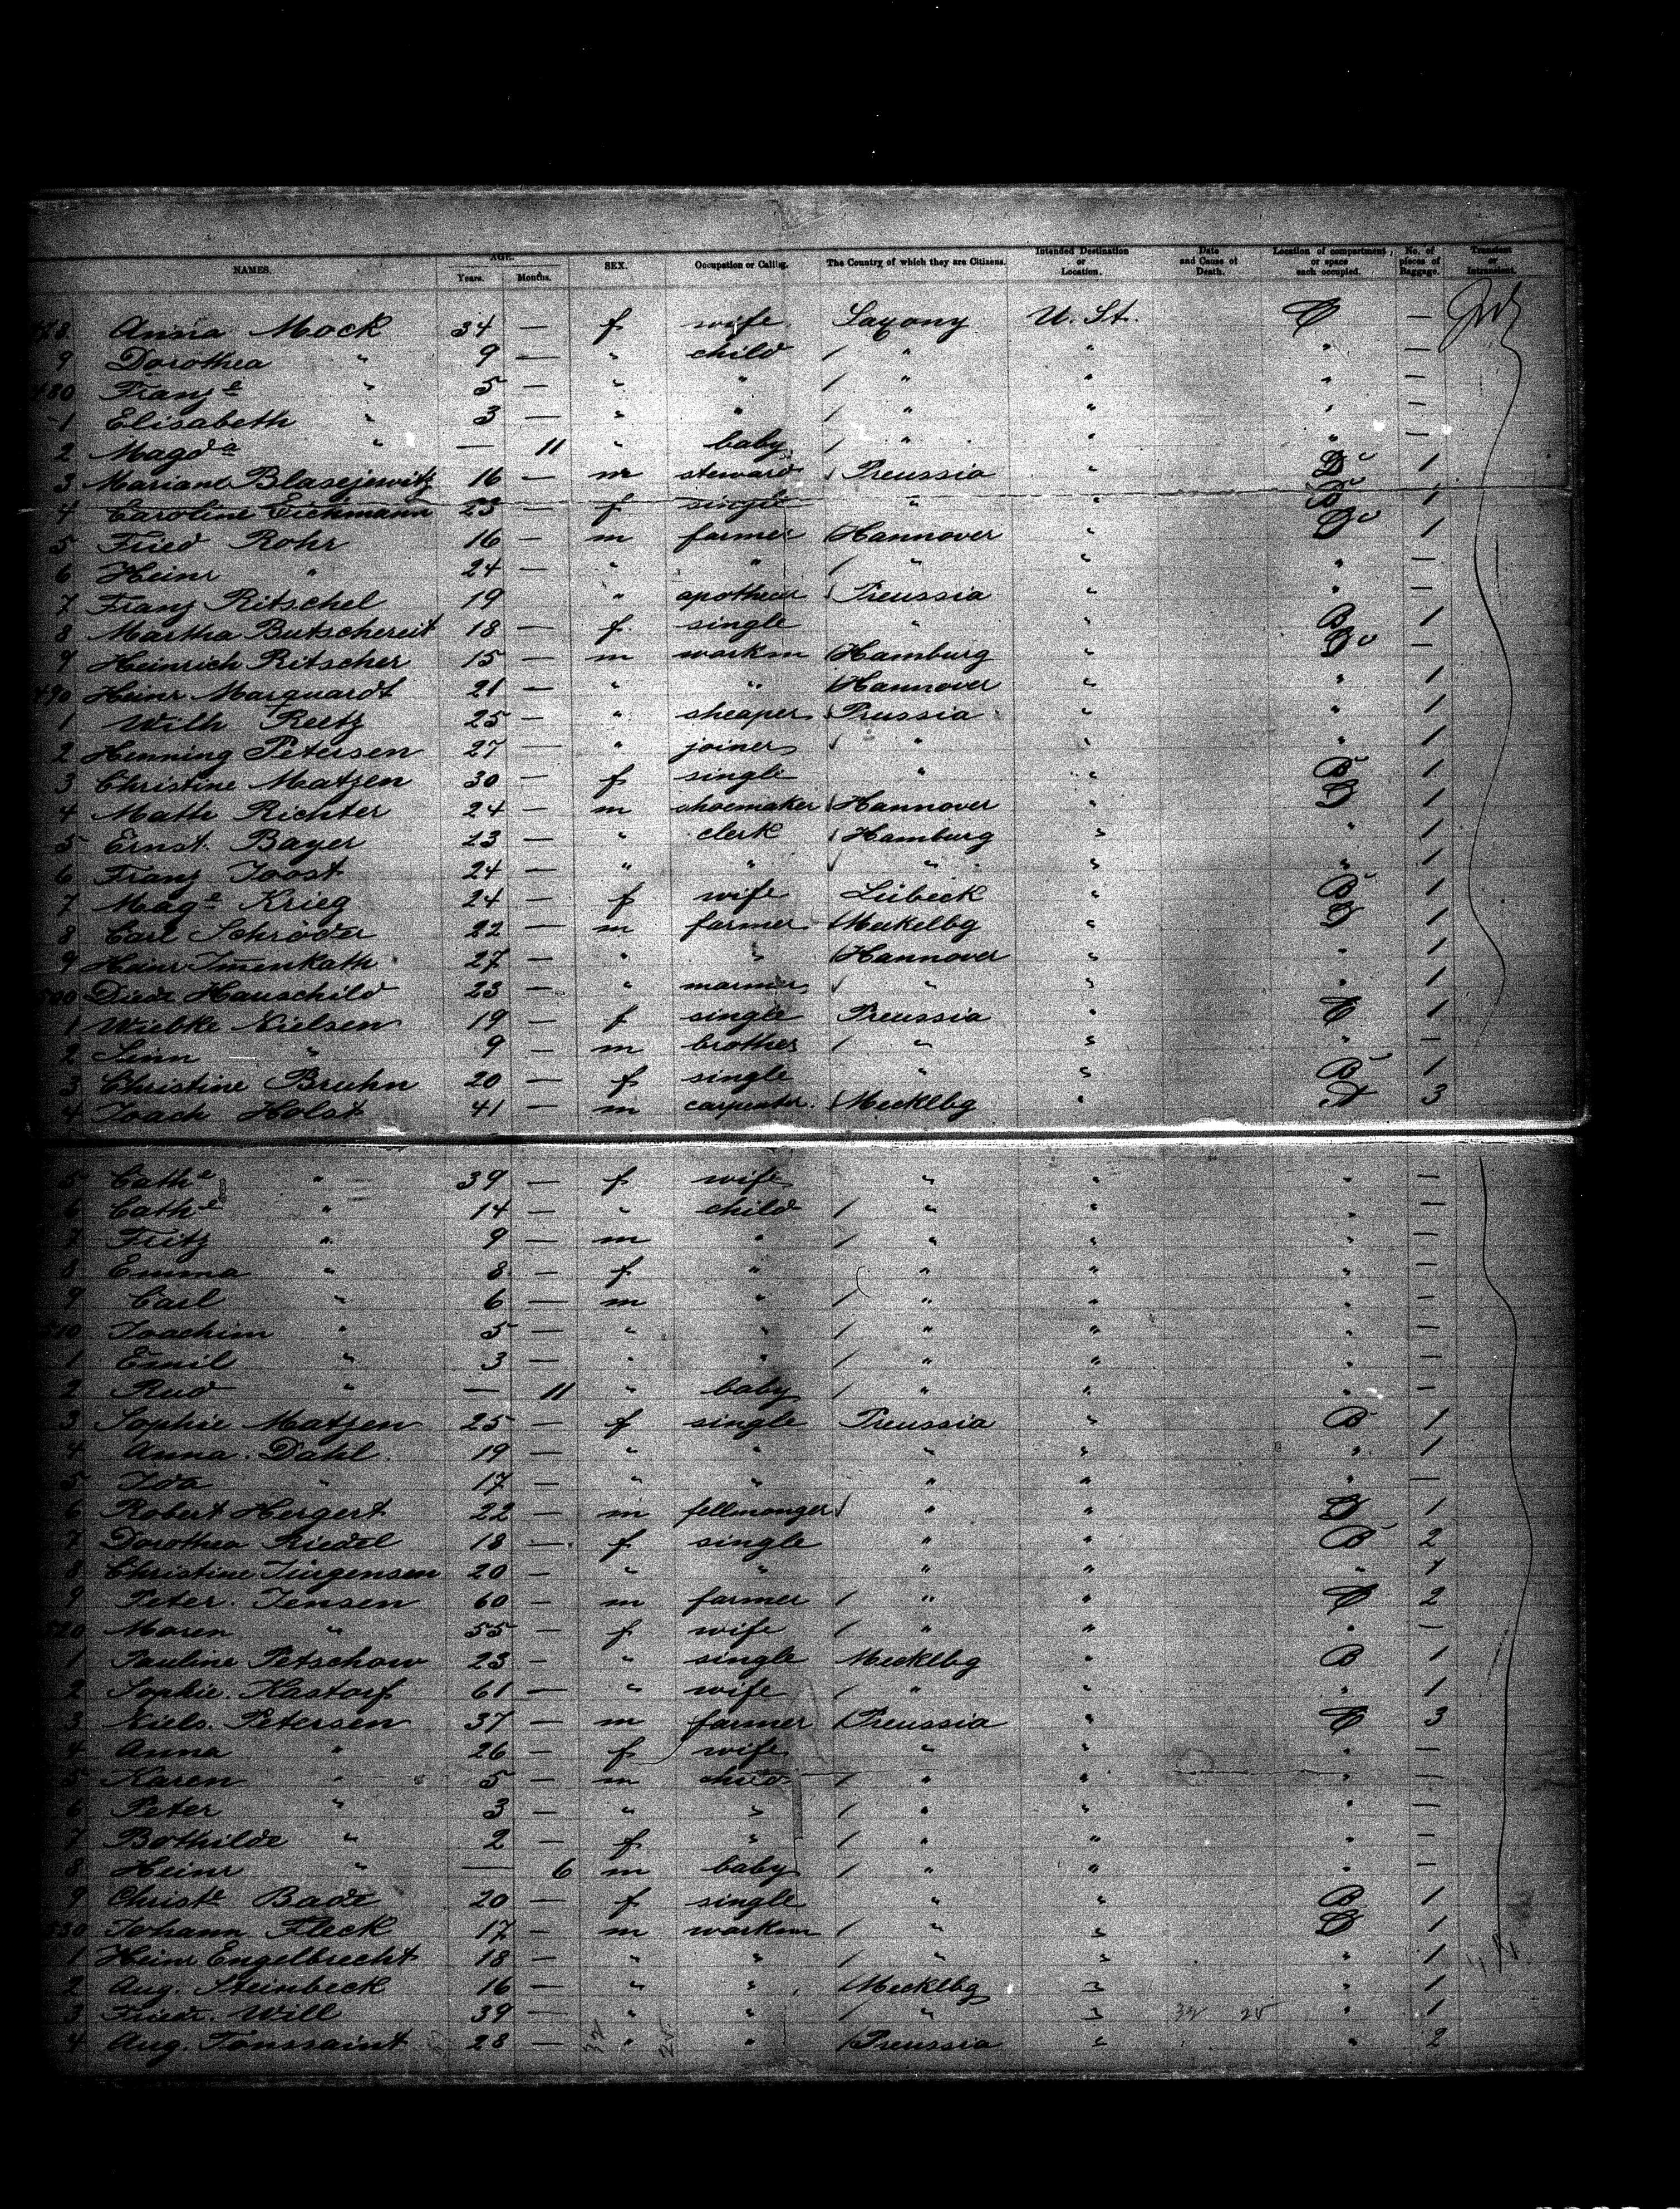 NAMES. AGE. Years. Months. SEX. Occupation or Calling. The Country of which they are Citizens. Intended Destination or Location. Date and Cause of Death. Location of compartment or space each occupied. No. of pieces of Baggage. Transient or Intransient.
478 Anna Mock 34 — f wife Saxony U. St. C —
9 Dorothea " 9 — " child " " " —
480 Franz e " 5 — " " " " " —
1 Elisabeth " 3 — " " " " " —
2 Magd a " — 11 " baby " " " —
3 Mariane Blasejewitz 16 — m steward Preussia " D 1
4 Caroline Eickmann 23 — f single " " B 1
5 Fried Rohr 16 — m farmer Hannover " D 1
6 Heinr " 24 — " " " " " —
7 Franz Ritschel 19 " apothecar Preussia " " —
8 Martha Butschereit 18 — f single " " B 1
9 Heinrich Ritscher 15 — m workm Hamburg " D —
490 Heinr Marquardt 21 — " " Hannover " " 1
1 Wilh Reetz 25 — " sheaper Prussia " " 1
2 Henning Petersen 27 — " joiner " " " 1
3 Christine Matzen 30 — f single " " B 1
4 Math Richter 24 — m shoemaker Hannover " D 1
5 Ernst. Bayer 23 — " clerk Hamburg " " 1
6 Franz Joost 24 — " " " " " 1
7 Mag e Krieg 24 — f wife Lübeck " B 1
8 Carl Schröder 22 — m farmer Meckelbg " D 1
9 Heinr Imenkath 27 — " " Hannover " " 1
500 Diedr Hauschild 23 — " mariner " " " 1
1 Wiebke Nielsen 19 — f single Preussia " C 1
2 Sinn " 9 — m brother " " " —
3 Christine Bruhn 20 — f single " " B 1
4 Joach Holst 41 — m carpenter. Mecklbg " 3
5 Cath e " 39 — f wife " " " —
6 Cath e " 14 — " child " " " —
7 Fritz " 9 — m " " " " —
8 Emma " 8 — f " " " " —
9 Carl " 6 — m " " " " —
510 Joachim " 5 — " " " " " —
1 Emil " 3 — " " " " " —
2 Rud " — 11 " baby " " " —
3 Sophie Matzen 25 — f single Preussia " B 1
4 Anna. Dahl. 19 — " " " " " 1
5 Ida " 17 — " " " " " —
6 Robert Hergert 22 — m fellmonger " " D 1
7 Dorothea Riedel 18 — f single " " B 2
8 Christine Jürgensen 20 — " " " " " 1
9 Peter. Jensen 60 — m farmer " " C 2
520 Maren " 55 — f wife " " " —
1 Pauline Petschow 23 — " single Mecklbg " B 1
2 Sophie. Kastorf 61 — " wife " " " 1
3 Niels. Petersen 37 — m farmer Preussia " C 3
4 Anna " 26 — f wife " " " —
5 Karen " 5 — m child " " " —
6 Peter " 3 — " " " " " —
7 Bothilde " 2 — f " " " " —
8 Heinr " — 6 m baby " " " —
9 Christe Bade 20 — f single " " B 1
530 Johann Fleck 17 — m workm " " D 1
1 Heinr Engelbrecht 18 — " " " " " 1
2 Aug. Steinbeck 16 — " " Mecklbg " " 1
3 Friedr. Will 39 — " " " " 32 25 " 1
4 Aug. Toussaint 28 — " " Preussia " " 2